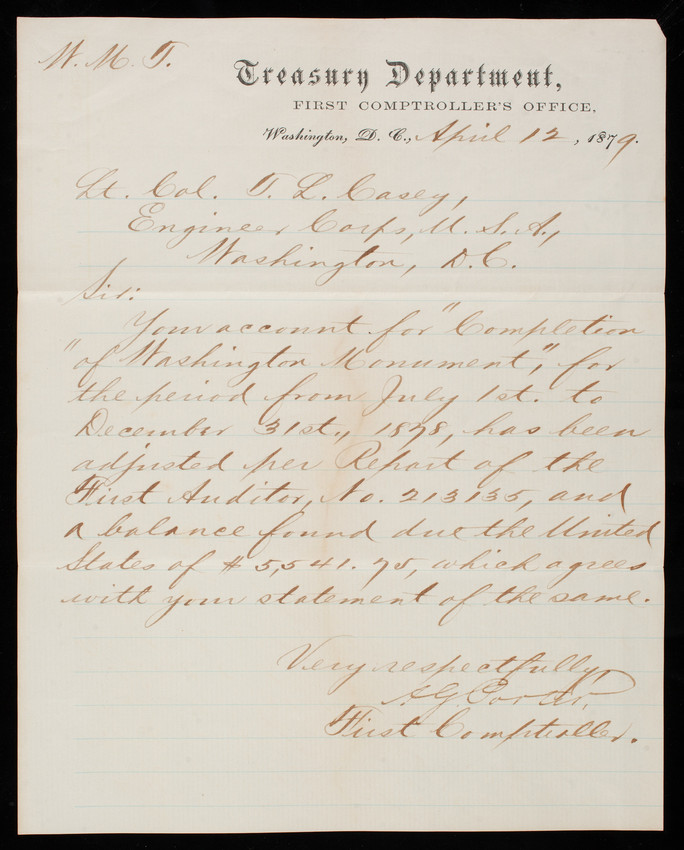 W. M. T.
Treasury Department,
FIRST COMPTROLLER'S OFFICE,
Washington, D. C., April 12, 1879.
Lt. Col. T. L. Casey,
Engineer Corps, U. S. A.,
Washington, D.C.
Sir:
Your account for "Completion
"of Washington Monument", for
the period from July 1st. to
December 31st., 1878, has been
adjusted per Report of the
First Auditor, No. 213135, and
a balance found due the United
States of $5,541.75, which agrees
with your statement of the same.
Very respectfully,
A.G. Porter,
First Comptroller.